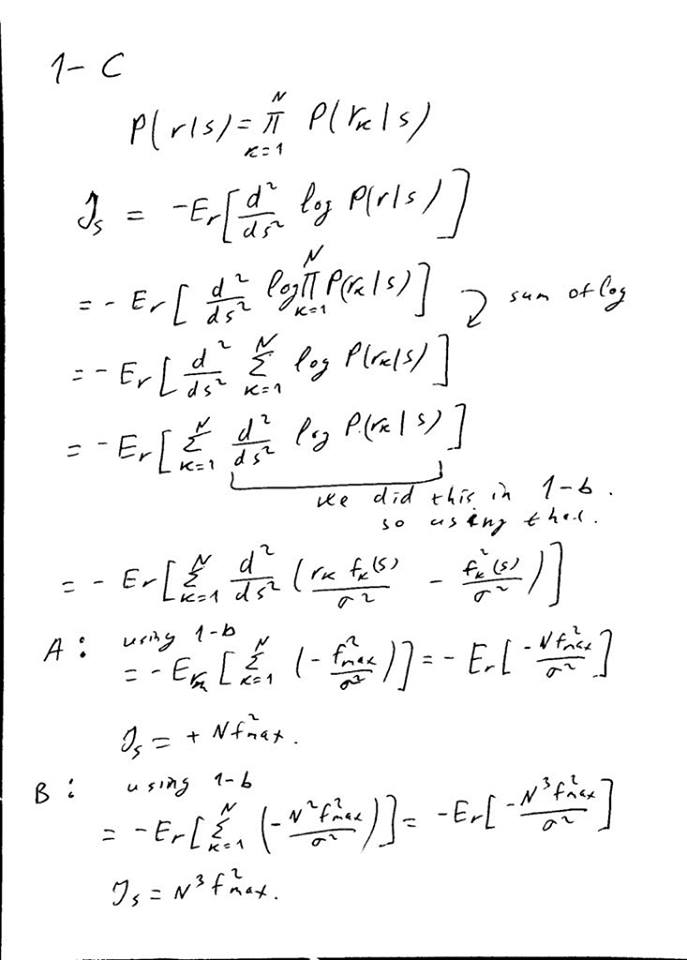 1- C
P(r|s) = π_{k=1}^{N} P(r_k|s)
J_s = -E_r[d²/ds² log P(r|s)]
= - E_r[d²/ds² log π_{k=1}^{N} P(r_k|s)] sum of log
= - E_r[d²/ds² Σ_{k=1}^{N} log P(r_k|s)]
= - E_r[Σ_{k=1}^{N} d²/ds² log P(r_k|s)]
we did this in 1-b.
so using that.
= - E_r[Σ_{k=1}^{N} d²/ds² (r_k f_k(s)/σ² - f_k²(s)/σ²)]
A: using 1-b
= - E_r[Σ_{k=1}^{N} (- f²_max/σ²)] = - E_r[- N f²_max/σ²]
J_s = + N f²_max.
B: using 1-b
= - E_r[Σ_{k=1}^{N} (- N² f²_max/σ²)] = - E_r[- N³ f²_max/σ²]
J_s = N³ f²_max.